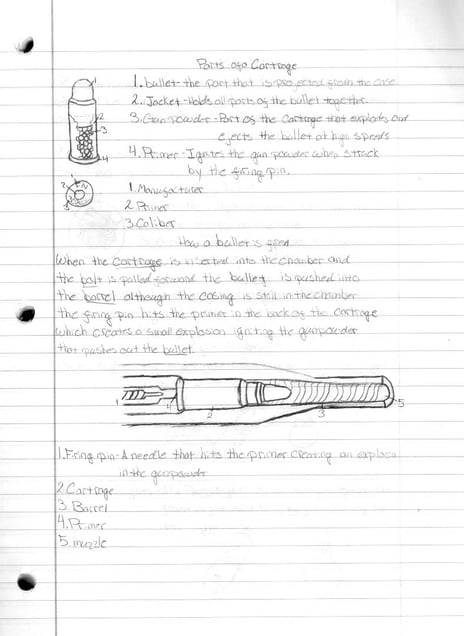 Parts of a Cartrage
1. bullet- the part that is projected from the case
2. Jacket-Holds all parts of the bullet together.
3. Gun powder-Part of the Cartrage that explodes and
ejects the bullet at high speeds
4. Primer-Ignites the gun powder when struck
by the firing pin.
1. Manufacturer
2 Primer
3. Caliber
How a bullet is fired
When the Cartrage is inserted into the chamber and
the bolt is pulled forward the bullet is pushed into
the barrel although the casing is still in the chamber
the firing pin hits the primer in the back of the Cartrage
which creates a small explosion igniting the gunpowder
that pushes out the bullet.
1
2
3
4
5
1. Firing pin-A needle that hits the primer creating an explosion
in the gunpowder
2. Cartrage
3. Barrel
4. Primer
5. muzzle